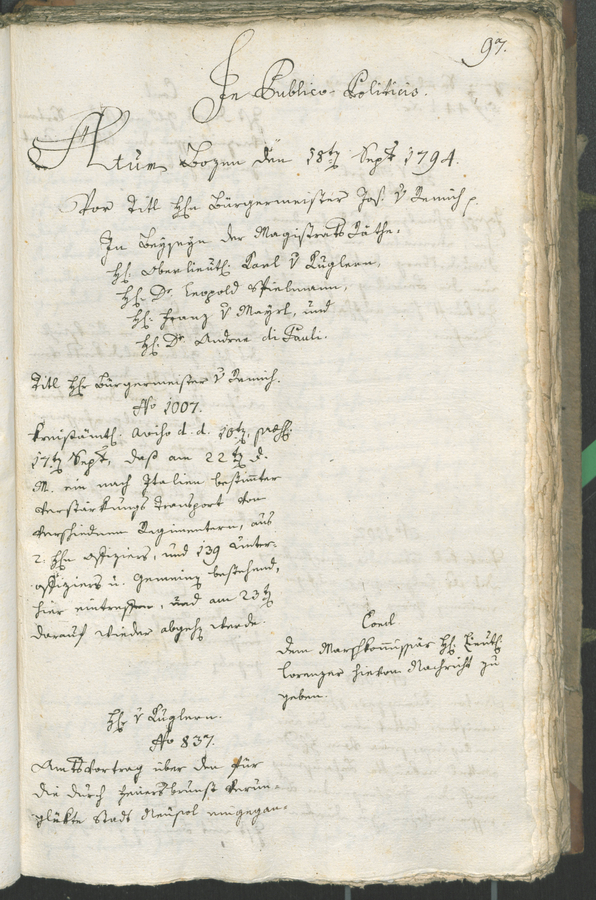 97.
In Publico-Politicis.
Actum Bozen den 18ten Sept 1794.
Vor Titl Hn Bürgermeister Jos. v Remich p.
In Beyseyn der Magistrats Räthe.
H. Oberlieut. Karl v Kuglern,
H. Dr. Leopold Spielmann,
H. Franz v Mayrl, und
H. Dr. Andree di Pauli.
Titl Hr Bürgermeister v Remich.
No 1007.
Kreisämtl. Aviso d. d. 10ten, praes.
17ten Sept, daß am 22ten d.
M. ein nach Italien bestimmter
Verstärkungs Transport von
verschiedenen Regimentern, aus
2. Hn Offiziers, und 139 Unter-
offiziers u. Gemeine bestehend,
hier eintreffen, und am 23ten
darauf wieder abgehen werde.
Concl.
Dem Marschkommissär H. Lieut.
Lorenzer hievon Nachricht zu
geben.
Hr v Kuglern.
No 837.
Amtsvortrag über den für
die durch Feuersbrunst verun-
glükte Stadt Neusol eingegan-